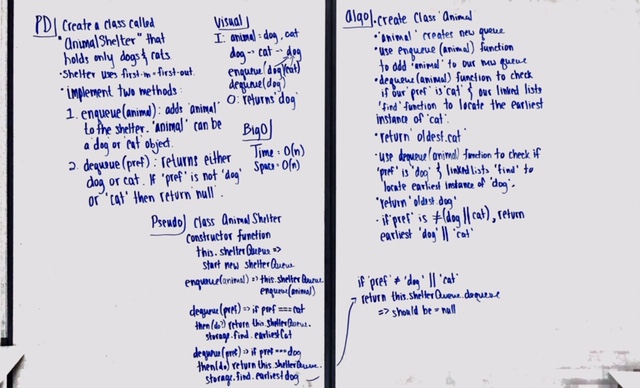 PD] Create a class called
"AnimalShelter" that
holds only dogs & cats
• Shelter uses first-in-first-out.
• implement two methods:
1. enqueue(animal): adds 'animal'
to the shelter. 'animal' can be
a 'dog' or 'cat' object.
2. dequeue(pref): returns either
dog or cat. If 'pref' is not 'dog'
or 'cat' then return 'null'.
Visual
I: animal = dog, cat
dog → cat → dog
enqueue(dog/cat)
dequeue(dog)
O: returns 'dog'
BigO
Time = O(n)
Space = O(n)
Pseudo] class AnimalShelter
constructor function
this.shelterQueue =>
start new shelterQueue
enqueue(animal) => this.shelterQueue.
enqueue(animal)
dequeue(pref) => if pref === cat
then(do) return this.shelterQueue.
storage.find.earliestCat
dequeue(pref) => if pref === dog
then(do) return this.shelterQueue.
storage.find.earliest dog
algo]. create class 'Animal'
• 'animal' creates new queue
• use enqueue(animal) function
to add 'animal' to our new queue
• dequeue(animal) function to check
if our 'pref' is 'cat' & our linked lists
'find' function to locate the earliest
instance of 'cat'.
• return 'oldest.cat'
• use dequeue(animal) function to check if
'pref' is 'dog' & linked lists 'find' to
locate earliest instance of 'dog'.
• 'return' oldest.dog'
• if 'pref' is ≠ (dog || cat), return
earliest 'dog' || 'cat'
if 'pref' ≠ 'dog' || 'cat'
return this.shelterQueue.dequeue
=> should be = null